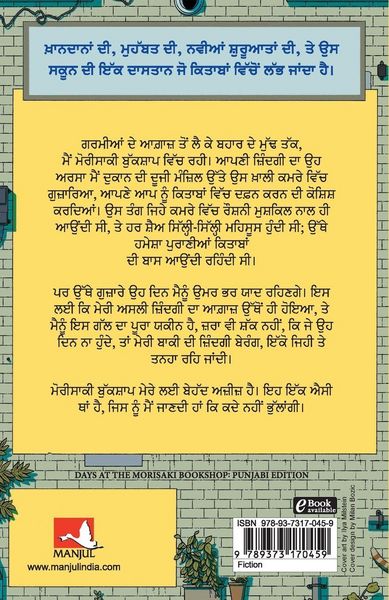 ਖ਼ਾਨਦਾਨਾਂ ਦੀ, ਮੁਹੱਬਤ ਦੀ, ਨਵੀਂਆਂ ਸ਼ੁਰੂਆਤਾਂ ਦੀ, ਤੇ ਉਸ
ਸਕੂਨ ਦੀ ਇੱਕ ਦਾਸਤਾਨ ਜੋ ਕਿਤਾਬਾਂ ਵਿੱਚੋਂ ਲੱਭ ਜਾਂਦਾ ਹੈ।
ਗਰਮੀਆਂ ਦੇ ਆਗ਼ਾਜ਼ ਤੋਂ ਲੈ ਕੇ ਬਹਾਰ ਦੇ ਮੁੱਢ ਤੱਕ,
ਮੈਂ ਮੋਰੀਸਾਕੀ ਬੁੱਕਸ਼ਾਪ ਵਿੱਚ ਰਹੀ। ਆਪਣੀ ਜ਼ਿੰਦਗੀ ਦਾ ਉਹ
ਅਰਸਾ ਮੈਂ ਦੁਕਾਨ ਦੀ ਦੂਜੀ ਮੰਜ਼ਿਲ ਉੱਤੇ ਉਸ ਖ਼ਾਲੀ ਕਮਰੇ ਵਿੱਚ
ਗੁਜ਼ਾਰਿਆ, ਆਪਣੇ ਆਪ ਨੂੰ ਕਿਤਾਬਾਂ ਵਿੱਚ ਦਫ਼ਨ ਕਰਨ ਦੀ ਕੋਸ਼ਿਸ਼
ਕਰਦਿਆਂ। ਉਸ ਤੰਗ ਜਿਹੇ ਕਮਰੇ ਵਿੱਚ ਰੌਸ਼ਨੀ ਮੁਸ਼ਕਿਲ ਨਾਲ ਹੀ
ਆਉਂਦੀ ਸੀ, ਤੇ ਹਰ ਸ਼ੈਅ ਸਿੱਲ੍ਹੀ-ਸਿੱਲ੍ਹੀ ਮਹਿਸੂਸ ਹੁੰਦੀ ਸੀ; ਉੱਥੇ
ਹਮੇਸ਼ਾ ਪੁਰਾਣੀਆਂ ਕਿਤਾਬਾਂ
ਦੀ ਬਾਸ ਆਉਂਦੀ ਰਹਿੰਦੀ ਸੀ।
ਪਰ ਉੱਥੇ ਗੁਜ਼ਾਰੇ ਉਹ ਦਿਨ ਮੈਨੂੰ ਉਮਰ ਭਰ ਯਾਦ ਰਹਿਣਗੇ। ਇਸ
ਲਈ ਕਿ ਮੇਰੀ ਅਸਲੀ ਜ਼ਿੰਦਗੀ ਦਾ ਆਗ਼ਾਜ਼ ਉੱਥੋਂ ਹੀ ਹੋਇਆ, ਤੇ
ਮੈਨੂੰ ਇਸ ਗੱਲ ਦਾ ਪੂਰਾ ਯਕੀਨ ਹੈ, ਜ਼ਰਾ ਵੀ ਸ਼ੱਕ ਨਹੀਂ, ਕਿ ਜੇ ਉਹ
ਦਿਨ ਨਾ ਹੁੰਦੇ, ਤਾਂ ਮੇਰੀ ਬਾਕੀ ਦੀ ਜ਼ਿੰਦਗੀ ਬੇਰੰਗ, ਇੱਕੋ ਜਿਹੀ ਤੇ
ਤਨਹਾ ਰਹਿ ਜਾਂਦੀ।
ਮੋਰੀਸਾਕੀ ਬੁੱਕਸ਼ਾਪ ਮੇਰੇ ਲਈ ਬੇਹੱਦ ਅਜ਼ੀਜ਼ ਹੈ। ਇਹ ਇੱਕ ਐਸੀ
ਥਾਂ ਹੈ, ਜਿਸ ਨੂੰ ਮੈਂ ਜਾਣਦੀ ਹਾਂ ਕਿ ਕਦੇ ਨਹੀਂ ਭੁੱਲਾਂਗੀ।
DAYS AT THE MORISAKI BOOKSHOP: PUNJABI EDITION
MANJUL
www.manjulindia.com
eBook
available
ISBN 978-93-7317-045-9
9 789373 170459
Fiction
Cover art by Ilya Milstein
Cover design by Milan Bozic